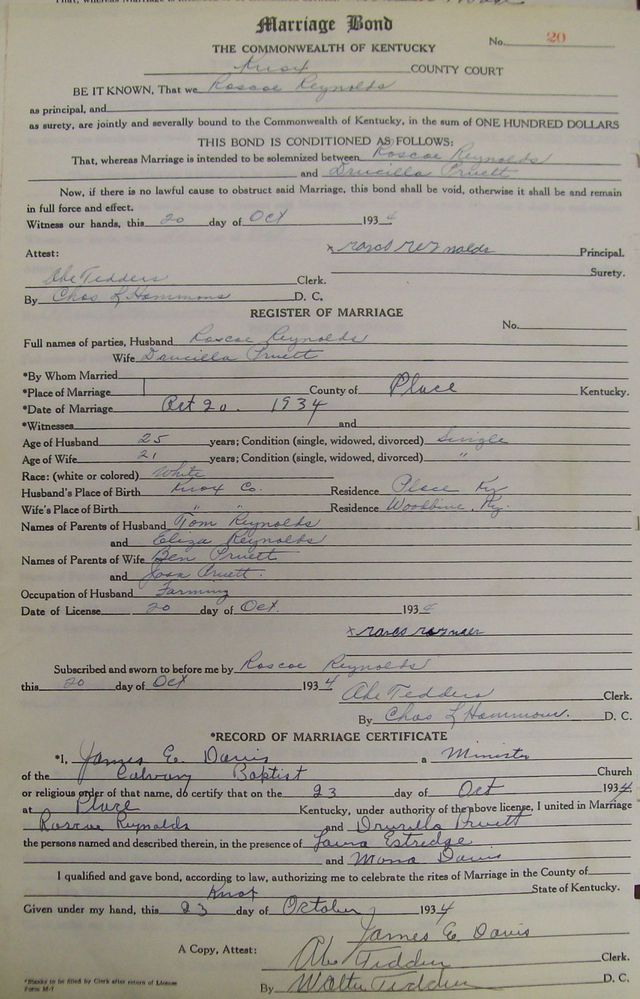 Marriage Bond
No. 20
THE COMMONWEALTH OF KENTUCKY
Knox COUNTY COURT
BE IT KNOWN, That we Roscoe Reynolds
as principal, and
as surety, are jointly and severally bound to the Commonwealth of Kentucky, in the sum of ONE HUNDRED DOLLARS
THIS BOND IS CONDITIONED AS FOLLOWS:
That, whereas Marriage is intended to be solemnized between Roscoe Reynolds
and Drucilla Pruett
Now, if there is no lawful cause to obstruct said Marriage, this bond shall be void, otherwise it shall be and remain
in full force and effect.
Witness our hands, this 20 day of Oct 1934
Attest: x Principal.
Surety.
Abe Tedders Clerk.
By Chas L Hammons D. C.
REGISTER OF MARRIAGE
No.
Full names of parties, Husband Roscoe Reynolds
Wife Drucilla Pruett
*By Whom Married
*Place of Marriage County of Place Kentucky.
*Date of Marriage Oct 20. 1934
*Witnesses and
Age of Husband 25 years; Condition (single, widowed, divorced) Single
Age of Wife 21 years; Condition (single, widowed, divorced) "
Race: (white or colored) White
Husband's Place of Birth Knox Co. Residence Place Ky
Wife's Place of Birth " " Residence Woodbine, Ky.
Names of Parents of Husband Tom Reynolds
and Eliza Reynolds
Names of Parents of Wife Ben Pruett
and Pruett.
Occupation of Husband Farming
Date of License 20 day of Oct. 1934
x
Subscribed and sworn to before me by Roscoe Reynolds
this 20 day of Oct 1934 Abe Tedders Clerk.
By Chas L Hammons. D. C.
*RECORD OF MARRIAGE CERTIFICATE
*I, James E. Davis a Minister
of the Calvary Baptist Church
or religious order of that name, do certify that on the 23 day of Oct 1934.
at Place Kentucky, under authority of the above license, I united in Marriage
Roscoe Reynolds and Drusilla Pruett
the persons named and described therein, in the presence of Laura Estridge
and Mona Davis
I qualified and gave bond, according to law, authorizing me to celebrate the rites of Marriage in the County of
Knox State of Kentucky.
Given under my hand, this 23 day of October 1934
James E. Davis
A Copy, Attest: Abe Tedders Clerk.
By Walter Tedders D. C.
*Blanks to be filled by Clerk after return of License
Form M-1